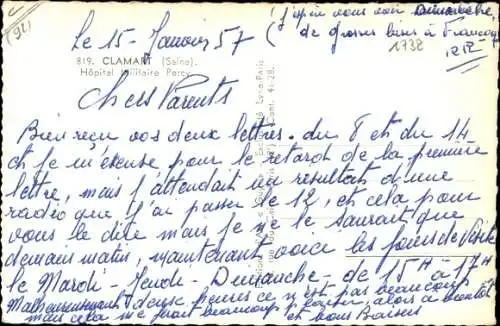 (92)
(j'espère vous voir Dimanche,
Le 15 - Janvier 57 ( de grosses bises à Francoise
1738
R.P
819. CLAMART (Seine).
Hôpital Militaire Percy.
Chers Parents
Bien reçu vos deux lettres. du 8 et du 14
et je m'excuse pour le retard de la première
lettre, mais j'attendait un résultat d'une
radio que j'ai passer le 12, et cela pour
vous le dire mais je ne le saurait que
demain matin, maintenant voice les jours de Visite
le Mardi - Jeudi - Dimanche - de 15 H à 17 H
Malheureusement deux heures ce n'est pas beaucoup
mais cela me fait beaucoup plaisir, alors à bientôt
et bons Baisers
Lyna-Paris